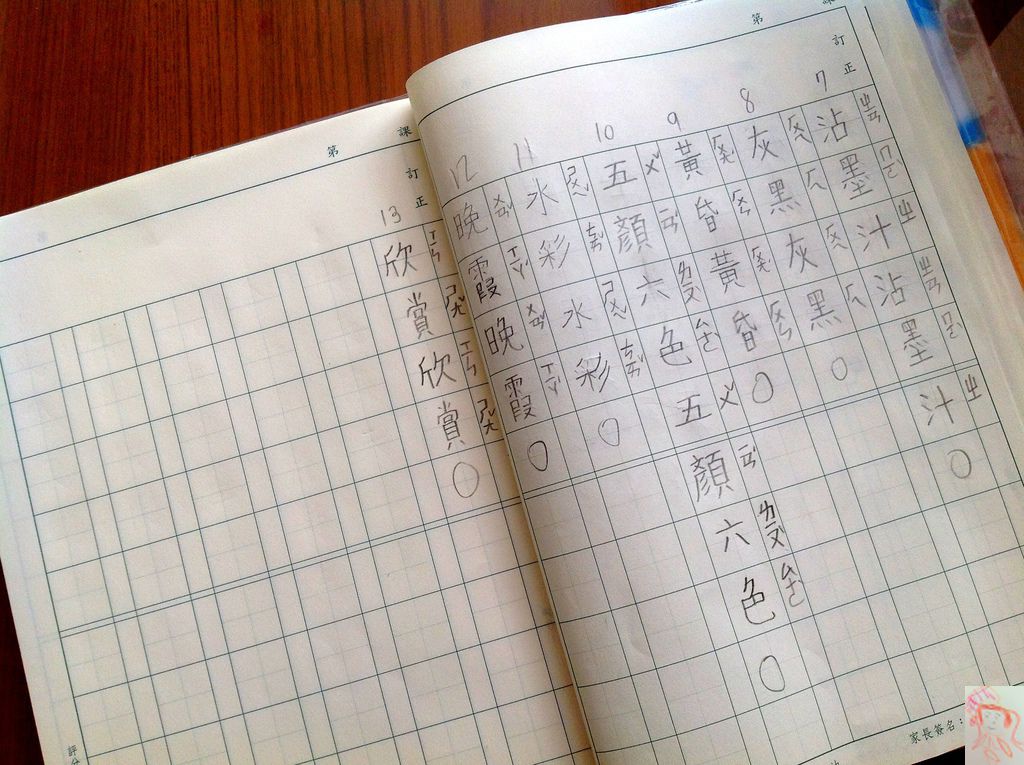 第 課
訂正
7 沾ㄓㄢ墨ㄇㄛˋ汁ㄓ沾ㄓㄢ墨ㄇㄛˋ汁ㄓ○
8 灰ㄏㄟ黑ㄏㄟ灰ㄏㄟ黑ㄏㄟ○
9 黃ㄏㄨㄤˊ昏ㄏㄨㄣ黃ㄏㄨㄤˊ昏ㄏㄨㄣ○
10 五ㄨˇ顏ㄧㄢˊ六ㄌㄧㄡˋ色ㄙㄜˋ五ㄨˇ顏ㄧㄢˊ六ㄌㄧㄡˋ色ㄙㄜˋ○
11 水ㄕㄨㄟˇ彩ㄘㄞˇ水ㄕㄨㄟˇ彩ㄘㄞˇ○
12 晚ㄨㄢˇ霞ㄒㄧㄚˊ晚ㄨㄢˇ霞ㄒㄧㄚˊ○
家長簽名：
第 課
訂正
13 欣ㄒㄧㄣ賞ㄕㄤˇ欣ㄒㄧㄣ賞ㄕㄤˇ○